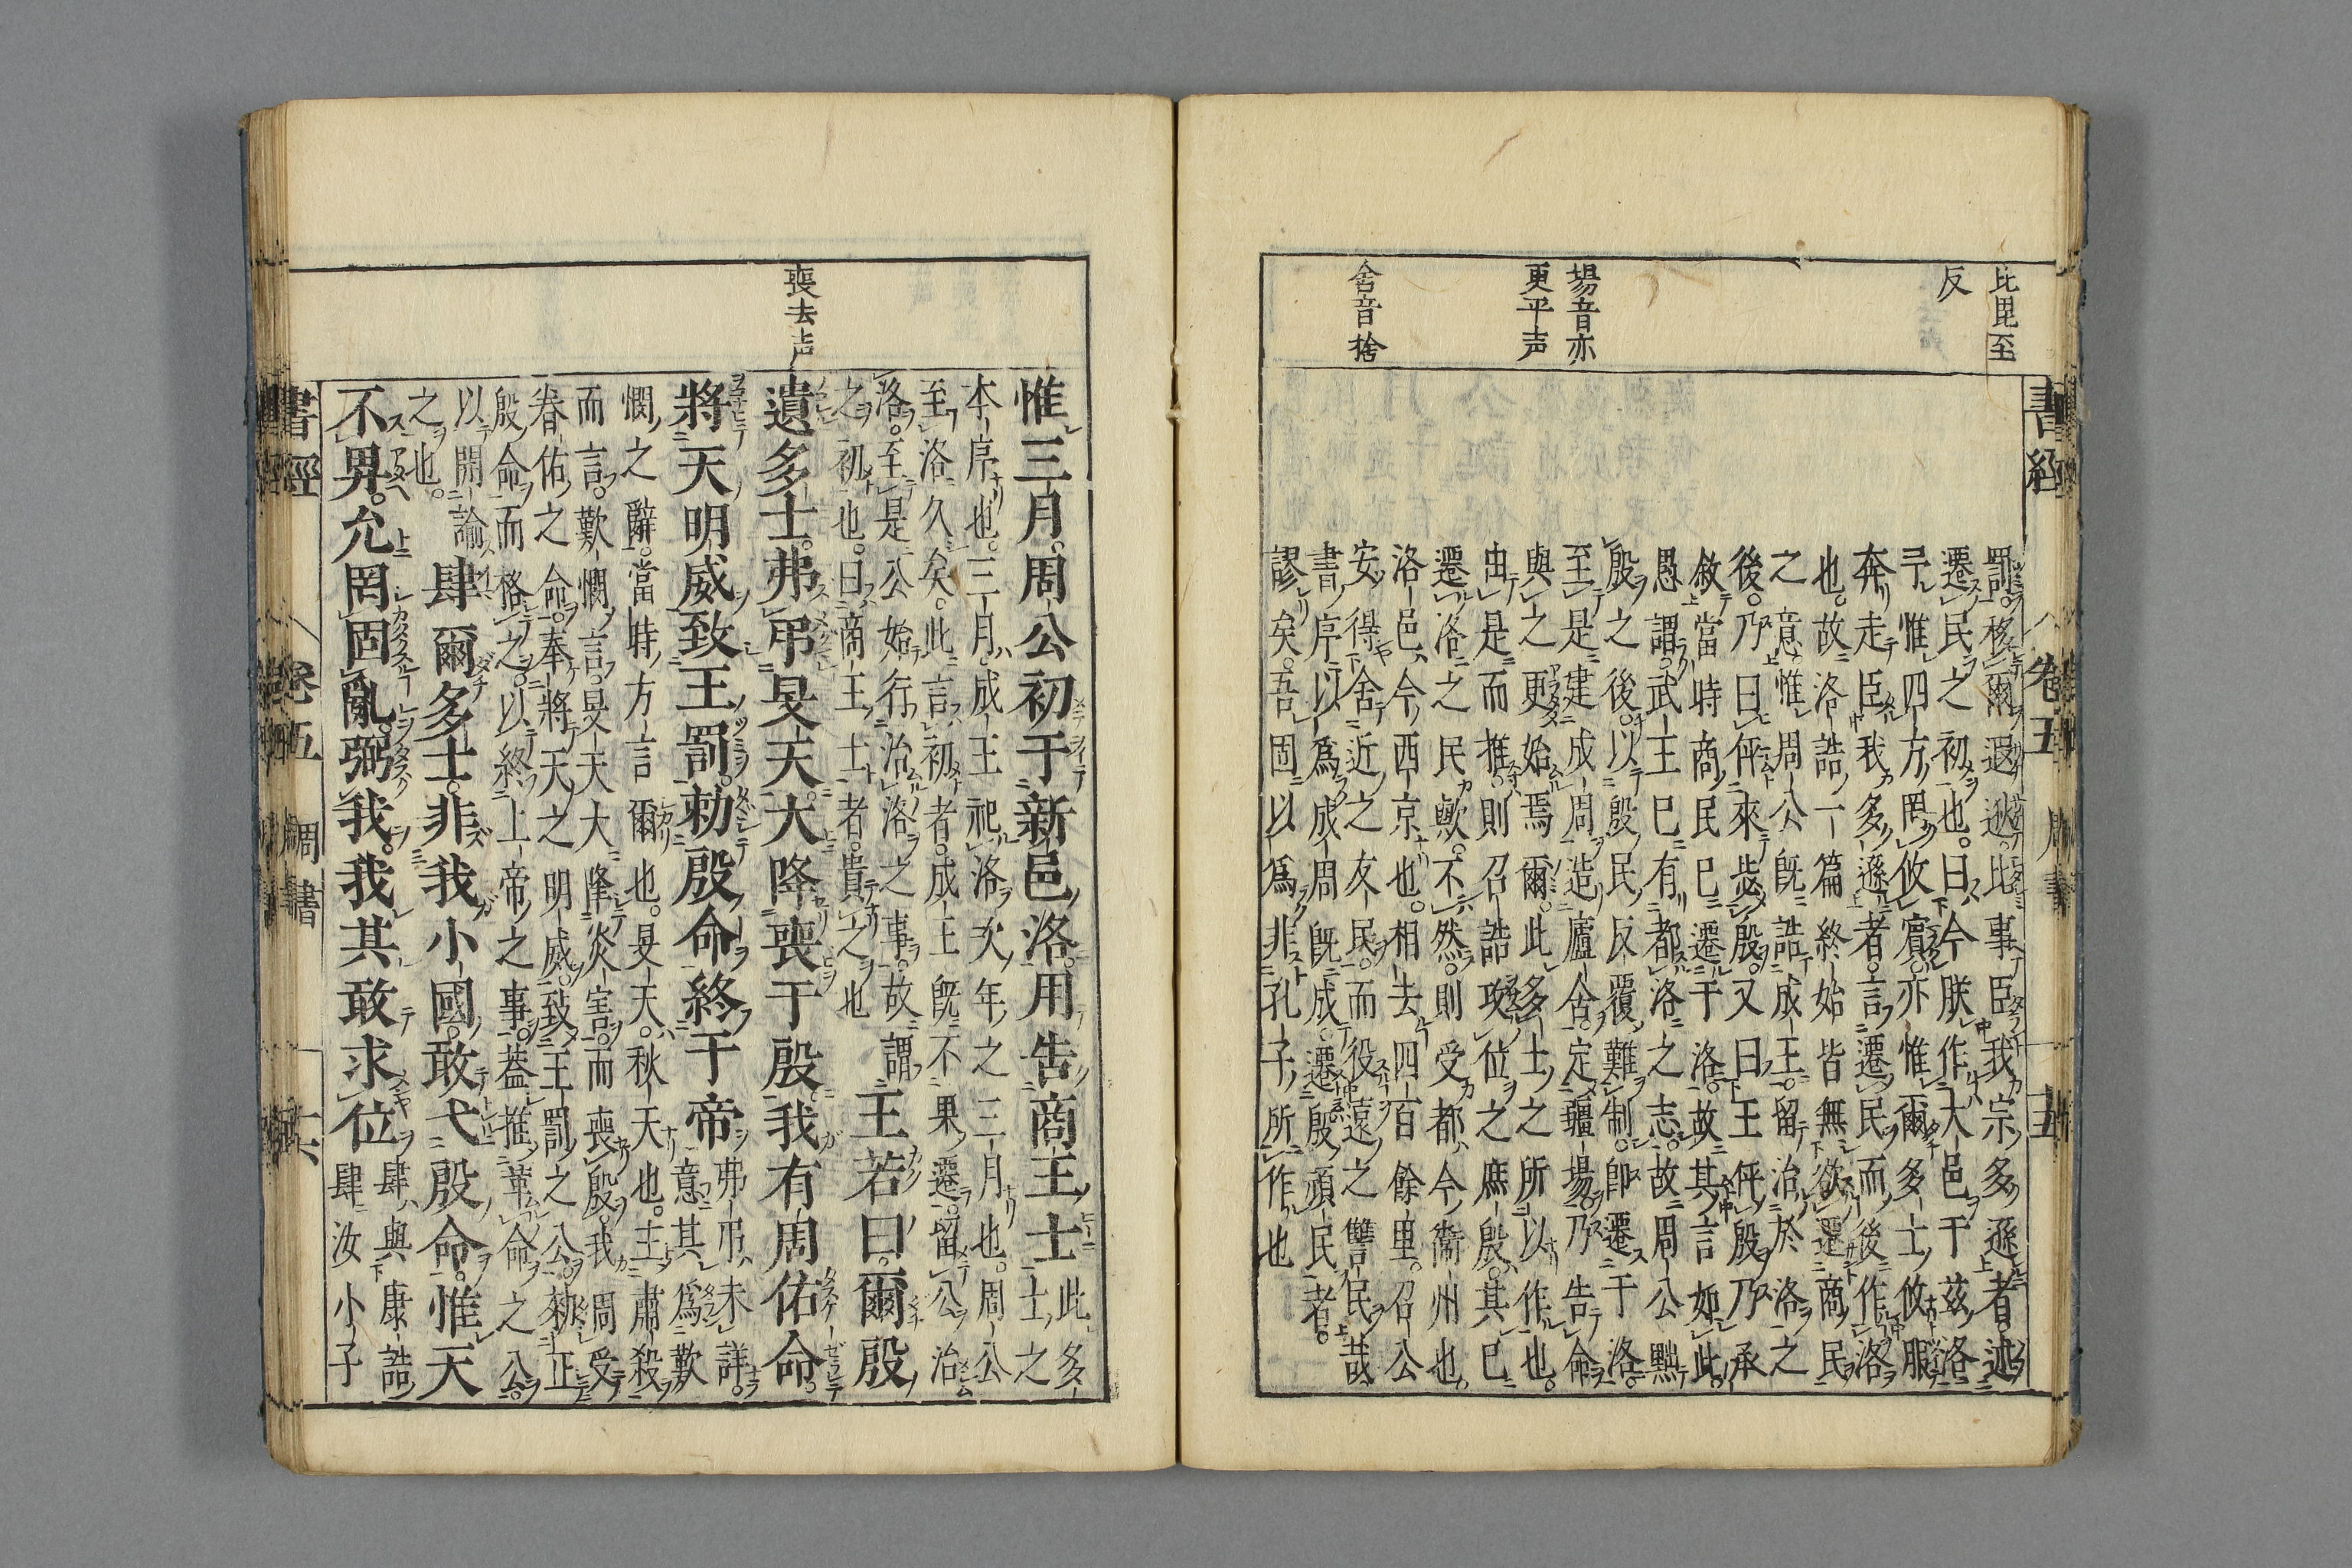 比毘至
反
埸音亦
更平声
舎音捨
書經 卷五 周書 十五
罰。移爾遐逖。比事臣我宗多遜者。述
遷民之初也。曰今朕作大邑于茲洛
予惟四方罔攸賓。亦惟爾多士攸服
奔走臣我多遜者。言遷民而後作洛
也。故洛誥一篇終始皆無欲遷商民
之意。惟周公既誥成王。留治於洛之
後。乃曰伻來毖殷。又曰王伻殷乃承
敘。當時商民已遷于洛。故其言如此。
愚謂。武王已有都洛之志。故周公黜
殷之後。以殷民反覆難制。即遷于洛。
至是建成周造廬舍。定疆埸。乃告命
與之更始焉爾。此多士之所以作也。
由是而推。則召誥攻位之庶殷。其已
遷洛之民歟。不然。則受都今衛州也。
洛邑今西京也。相去四百餘里。召公
安得舍近之友民。而役遠之讐民哉。
書序以爲成周既成。遷殷頑民者。
謬矣。吾固以爲非孔子所作也
喪去声
惟三月。周公初于新邑洛。用告商王士 此多士之
本序也。三月。成王祀洛次年之三月也。周公
至洛久矣。此言初者。成王既不果遷。留公治
洛。至是公始行治洛之事。故謂
之初也。曰商王士者。貴之也
王若曰。爾殷
遺多士。弗弔旻天。大降喪于殷。我有周佑命。
將天明威。致王罰。勑殷命終于帝 弗弔未詳。意其爲歎
憫之辭。當時方言爾也。旻天。秋天也。主肅殺
而言。歎憫言。旻天大降災害。而喪殷。我周受
眷佑之命。奉將天之明威。致王罰之公。勑正
殷命而格之。以終上帝之事。葢推革命之公。
以開諭
之也。
肆爾多士。非我小國。敢弋殷命。惟天
不畀。允罔固亂。弼我。我其敢求位 肆與康誥
肆汝小子
書經 卷五 周書 十六